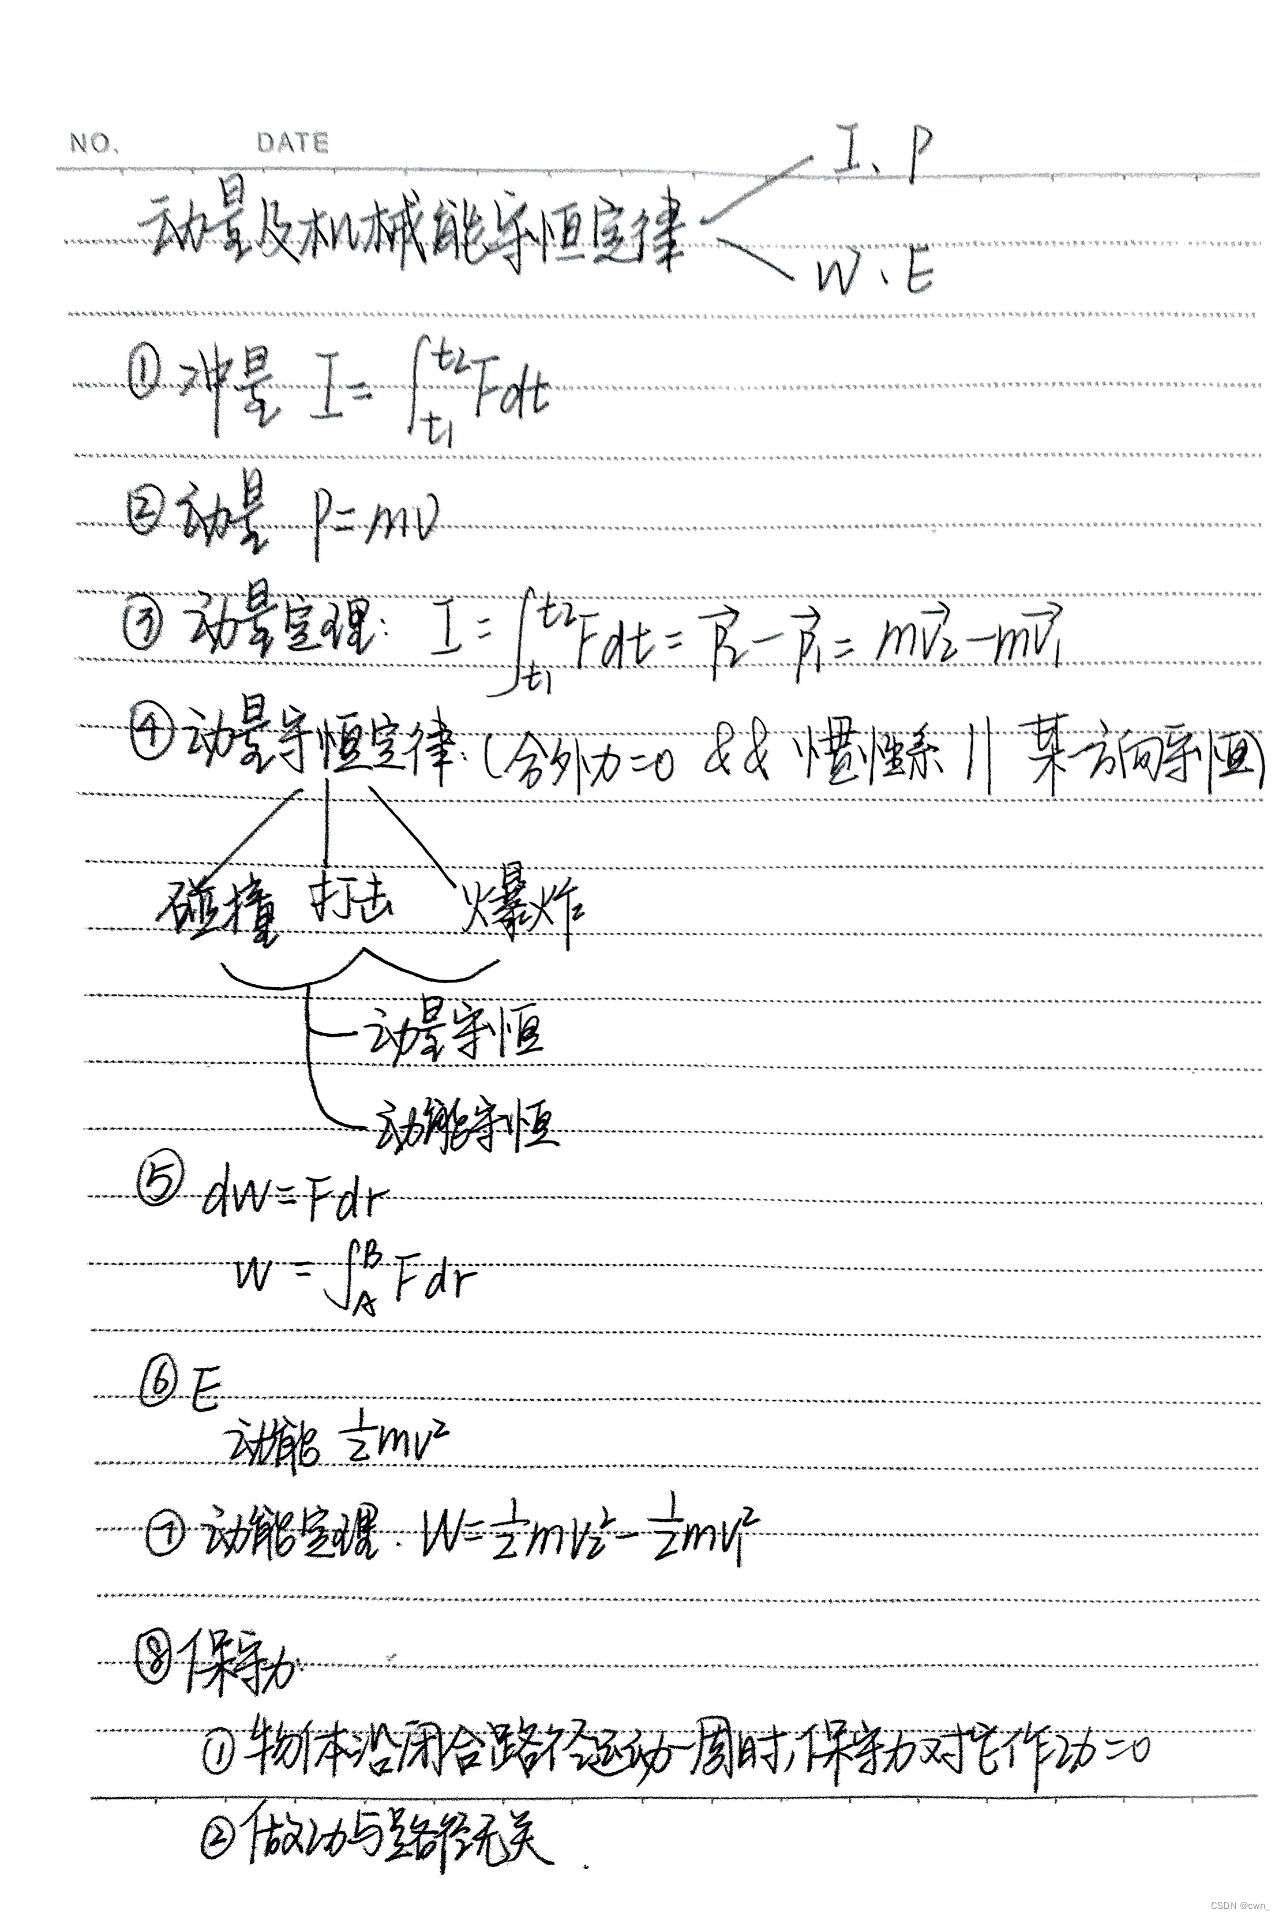 NO. DATE
I、P
动量及机械能守恒定律
W、E
① 冲量 I = ∫_{t1}^{t2} Fdt
② 动量 P = mv
③ 动量定理: I = ∫_{t1}^{t2} Fdt = \vec{P_2} - \vec{P_1} = m\vec{v_2} - m\vec{v_1}
④ 动量守恒定律: (合外力=0 && 惯性系 || 某一方向守恒)
碰撞 打击 爆炸
动量守恒
动能守恒
⑤ dW = Fdr
W = ∫_A^B Fdr
⑥ E
动能 ½mv²
⑦ 动能定理. W = ½mv₂² - ½mv₁²
⑧ 保守力.
① 物体沿闭合路径运动一周时,保守力对它作功=0
② 做功与路径无关.
CSDN @cwn_